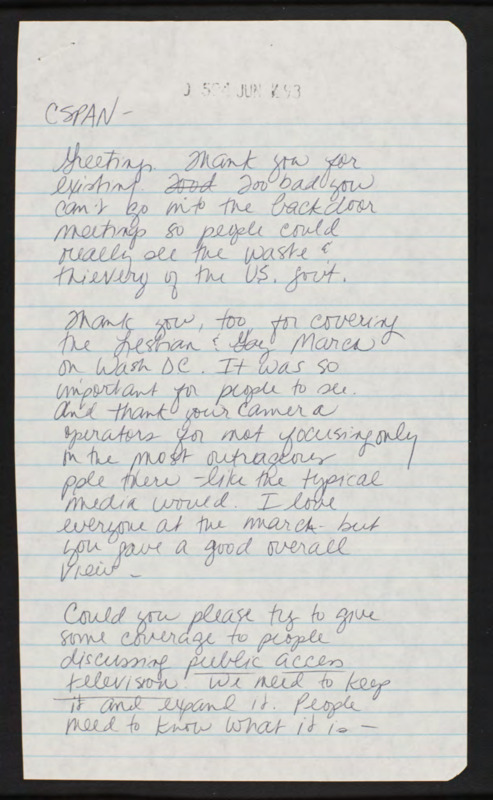 JUN 93
CSPAN -
Greetings. Thank you for
existing. Too bad you
can't go into the backdoor
meetings so people could
really see the waste &
thievery of the US. Gov't.
Thank you, too, for covering
the Lesbian & Gay March
on Wash DC. It was so
important for people to see.
And thank your camera
operators for not focusing only
on the most outrageous
pple there - like the typical
media would. I love
everyone at the march - but
you gave a good overall
view -
Could you please try to give
some coverage to people
discussing public access
television. We need to keep
it and expand it. People
need to know what it is -